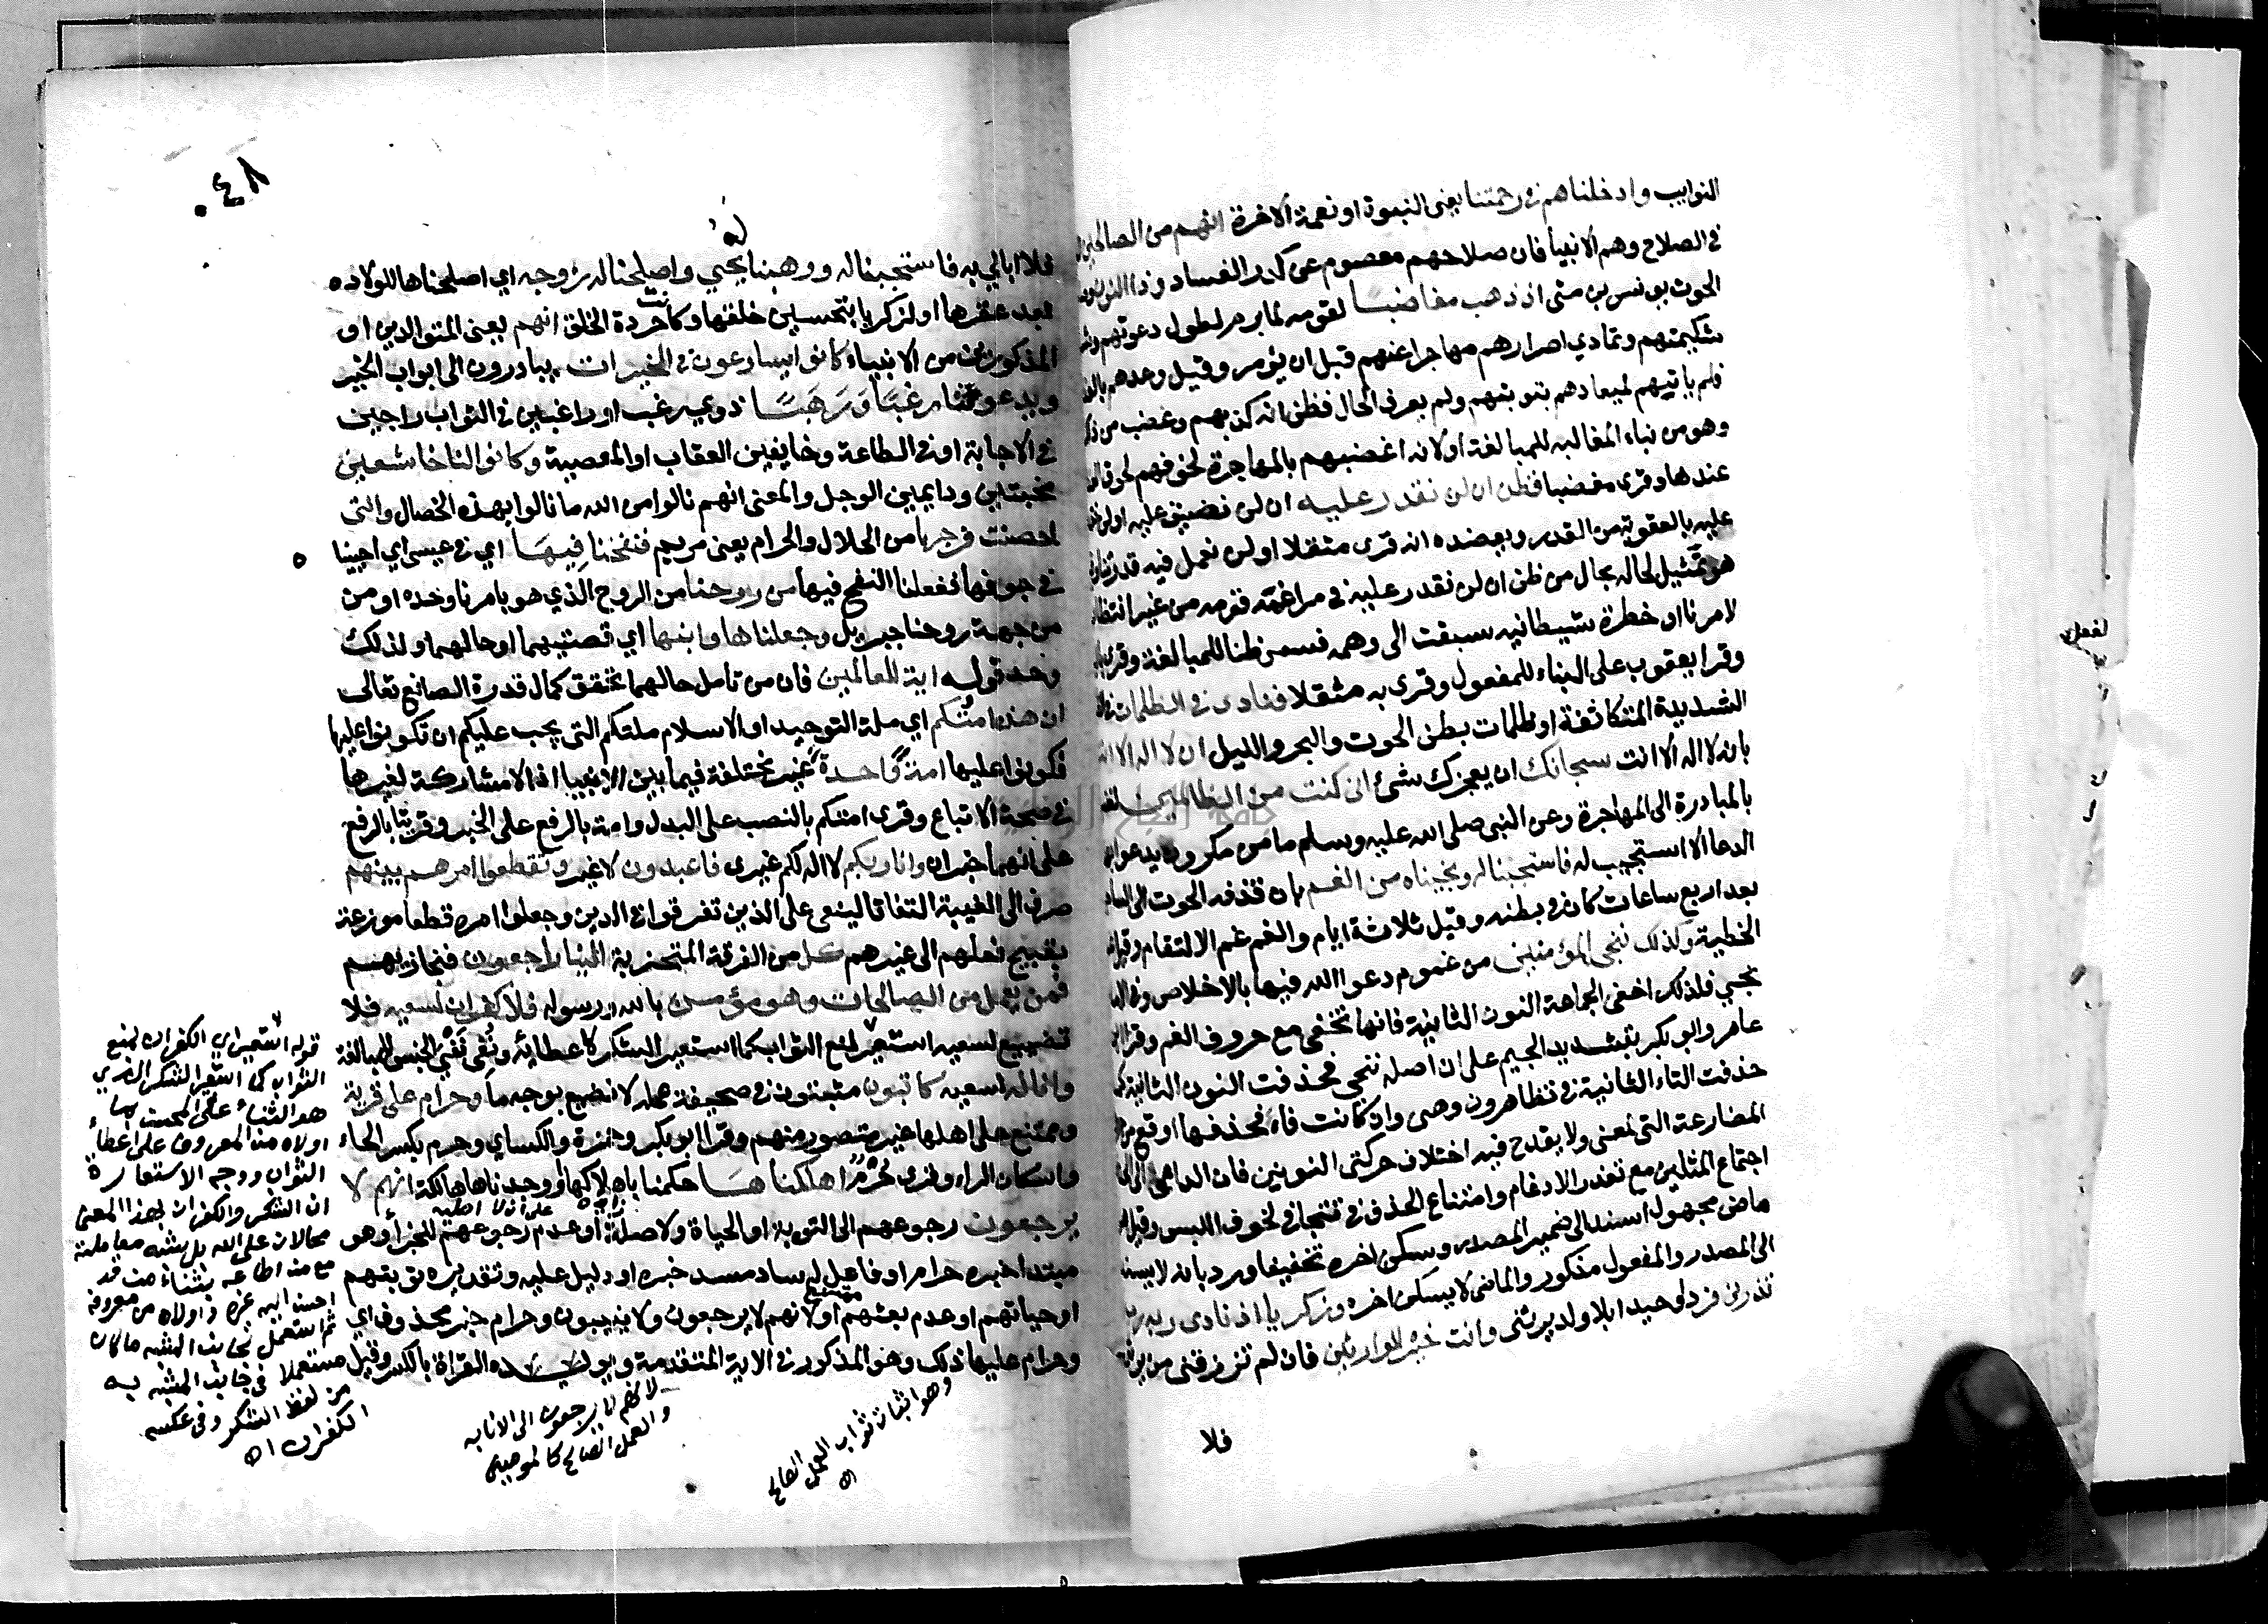 النوايب وادخلناهم في رحمتنا يعني النبوة او نعمة الاخرة انهم من الصالحين
في الصلاح وهم الانبيا فان صلاحهم معصوم عن كدر الفساد وذا النون
الحوت يونس بن متى اذ ذهب مغاضبا لقومه لما برم لطول دعوتهم
شكيمتهم وتمادي اصرارهم مهاجرا عنهم قبل ان يؤمر وقيل وعدهم
فلم ياتيهم لميعادهم بتوبتهم ولم يعرف الحال فظن انه كذبهم وغضب من
وهو من بناء المغالبه للمبالغة او لانه اغضبهم بالمهاجرة لخوفهم
عندها وقرى مغضبا فظن ان لن نقدر عليه ان لن نضيق عليه او
عليه بالعقوبة من القدر ويعضده انه قرى مثقلا او لن نعمل فيه قدرتنا
هو تمثيل لحاله بحال من ظن ان لن نقدر عليه في مراغمته قومه من غير انتظار
لامرنا او خطرة شيطانيه سبقت الى وهمه فسمى ظنا للمبالغة وقرى
وقرا يعقوب على البناء للمفعول وقرى به مثقلا فنادى في الظلمات
الشديدة المتكاثفة او ظلمات بطن الحوت والبحر والليل ان لا اله الا
بانه لا اله الا انت سبحانك ان يعجزك شئ انى كنت من الظالمين
بالمبادرة الى المهاجرة وعن النبي صلى الله عليه وسلم ما من مكروب يدعو
الدعا الا استجيب له فاستجبنا له ونجيناه من الغم بان قذفه الحوت الى
بعد اربع ساعات كان في بطنه وقيل ثلاثة ايام والغم غم الالتقام وقيل
الخطيية وكذلك ننجى المؤمنين من غموم دعوا الله فيها بالاخلاص وفي
نجي فلذلك اخفى الجماعة النون الثانية فانها تخفى مع حروف الفم وقرا
عامر وابو بكر بتشديد الجيم على ان اصله ننجي فحذفت النون الثانية
حذفت التاء الثانية في تظاهرون وهى وان كانت فاء فحذفها اوقع
المضارعة التي لمعنى ولا يقدح فيه اختلاف حركتى النونين فان الداعى الى
اجتماع المثلين مع تعذر الادغام وامتناع الحذف في تتجافى لخوف اللبس وقيل
ماض مجهول اسند الى ضمير المصدر وسكن اخره تخفيفا ورد بانه لا يسند
الى المصدر والمفعول مذكور والماضى لا يسكن اخره وزكريا اذ نادى ربه
تذرنى فردا وحيدا بلا ولد يرثنى وانت خير الوارثين فان لم ترزقنى من
فلا
٠٤٨
فلا ابالي به فاستجبنا له ووهبنا له يحيي واصلحنا له زوجه اي اصلحناها للولاده
بعد عقرها او لزكريا بتحسين خلقها وكانت حردة الخلق انهم يعنى المتوالدين او
المذكورين من الانبياء كانوا يسارعون في الخيرات يبادرون الى ابواب الخير
ويدعوننا رغبًا ورهبًا ذوي رغب او راغبين في الثواب راجين
في الاجابة او في الطاعة وخايفين العقاب او المعصية وكانوا لنا خاشعين
مخبتين ودايمين الوجل والمعنى انهم نالوا من الله ما نالوا بهذه الخصال والتى
احصنت فرجها من الحلال والحرام يعنى مريم فنفخنا فيها اي في عيسى اي احيينا
في جوفها ففعلنا النفخ فيها من روحنا من الروح الذي هو بامرنا وحده او من
من جهة روحنا جبريل وجعلناها وابنها اي قصتيهما او حالهما ولذلك
وحد قوله اية للعالمين فان من تامل حالهما تحقق كمال قدرة الصانع تعالى
ان هذه امتكم اي ملة التوحيد او الاسلام ملتكم التى يجب عليكم ان تكونوا عليها
فكونوا عليها امة واحدة غير مختلفة فيما بين الانبيا اذ لا مشاركة لغيرها
في صحة الاتباع وقرى امتكم بالنصب على البدل وامة بالرفع على الخبر وقريتا بالرفع
على انهما خبران وانا ربكم لا اله لكم غيرى فاعبدون لا غير وتقطعوا امرهم بينهم
صرف الى الغيبة التفاتا لينعى على الذين تفرقوا في الدين وجعلوا امره قطعا موزعة
بقبيح فعلهم الى غيرهم كل من الفرقة المتحزبة الينا راجعون فنجازيهم
فمن يعمل من الصالحات وهو مؤمن بالله ورسوله فلا كفران لسعيه فلا
تضييع لسعيه استعير لمنع الثواب كما استعير الشكر لاعطائه ونفى نفى الجنس للمبالغة
وانا له لسعيه كاتبون مثبتون في صحيفة عمله لا نضيع بوجه ما وحرام على قرية
وممتنع على اهلها غير متصور منهم وقرا ابو بكر وحمزة والكساي وحرم بكسر الحاء
واسكان الراء وقرى حرم اهلكناها حكمنا باهلاكها او وجدناها هالكة انهم لا
يرجعون رجوعهم الى التوبة او الحياة ولا صلة او عدم رجوعهم للجزا وهو
مبتدا خبره حرام او فاعل له ساد مسد خبره او دليل عليه وتقديره توبتهم
او حياتهم او عدم بعثهم او لانهم لا يرجعون ولا ينيبون وحرام خبر محذوف اي
وحرام عليها ذلك وهو المذكور في الاية المتقدمة ويويده القراة بالكسر وقيل
قوله استعير اي الكفران لمنع
الثواب كما استعير الشكر الذي
هو الثناء على المحسن بما
اولاه من المعروف على اعطاء
الثواب ووجه الاستعارة
ان الشكر والكفران بهذا المعنى
محالان على الله بل يشبه معاملته
مع من اطاعه بثناء من قد
احسن اليه غيره واولاه من معروفه
ثم استعمل لجانب المشبه ما كان
مستعملا في جانب المشبه به
من لفظ الشكر وفي عكسه
الكفران اه
لانهم لا يرجعون الى الانابه
والعمل الصالح
وهو اثبات ثواب العمل الصالح
اه